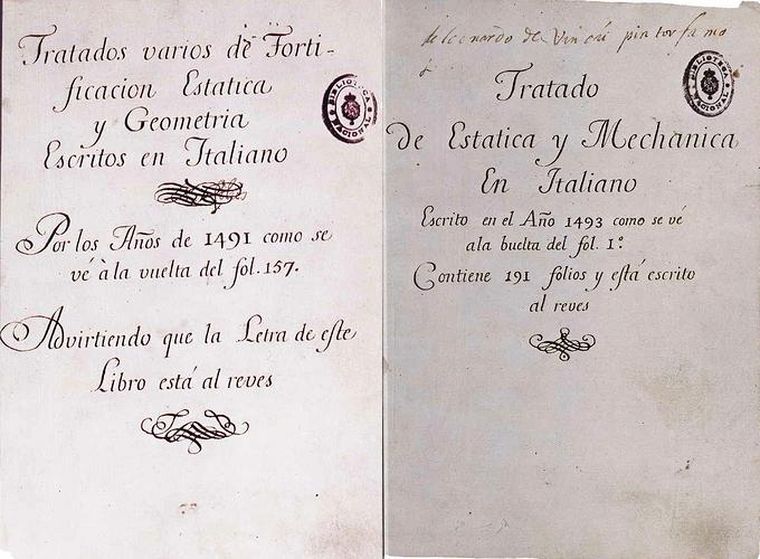 Tratados varios de Forti-
ficacion Estatica
y Geometria
Escritos en Italiano
Por los Años de 1491 como se
vé à la vuelta del fol. 157.
Advirtiendo que la Letra de este
Libro está al reves
BIBLIOTECA NACIONAL
de Leonardo de Vinci pintor famo
BIBLIOTECA NACIONAL
Tratado
De Estatica y Mechanica
En Italiano
Escrito en el Año 1493 como se vé
ala buelta del fol. 1º.
Contiene 191 folios y está escrito
al reves